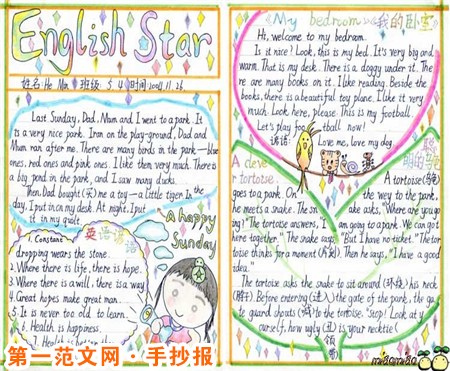 English Star
姓名 He Min 班级 5.4 时间 2004.11.26.
Last Sunday, Dad, Mum and I went to a park. It
is a very nice park. I ran on the play-ground, Dad and
Mum ran after me. There are many birds in the park—blue
ones, red ones and pink ones. I like them very much. There is
a big pond in the park, and I saw many ducks.
Then, Dad bought(买) me a toy—a little tiger. In the
day, I put it on my desk. At night, I put
it in my quilt.
A happy
Sunday
英语谚语
1. Constant
dropping wears the stone.
2. Where there is life, there is hope.
3. Where there is a will, there is a way
4. Great hopes make great man.
5. It is never too old to learn.
6. Health is happiness.
My bedroom 我的卧室
Hi, welcome to my bedroom.
Is it nice? Look, this is my bed. It's very big and
warm. That is my desk. There is a doggy under it. The
re are many books on it. I like reading. Beside the
books, there is a beautiful toy plane. I like it very
much. Look here, please. This is my football.
Let's play football now!
谚语: Love me, love my dog.
A clever
tortoise.
聪明的龟
A tortoise(乌龟)
goes to a park. On the way to the park,
he meets a snake. The snake asks, "Where are you go
ing?" The tortoise answers, "I am going to a park. We can go t
here together." The snake says, "But I have no ticket." The tor
toise thinks for a moment (片刻). Then he says, "I have a good
idea."
The tortoise asks the snake to sit around (环绕) his neck
(脖子). Before entering (进入) the gate of the park, the ga
te guard shouts (喊) to the tortoise. "Stop! Look at y
ourself, how ugly (丑) is your necktie (
领带)
第一范文网·手抄报
miaomiao